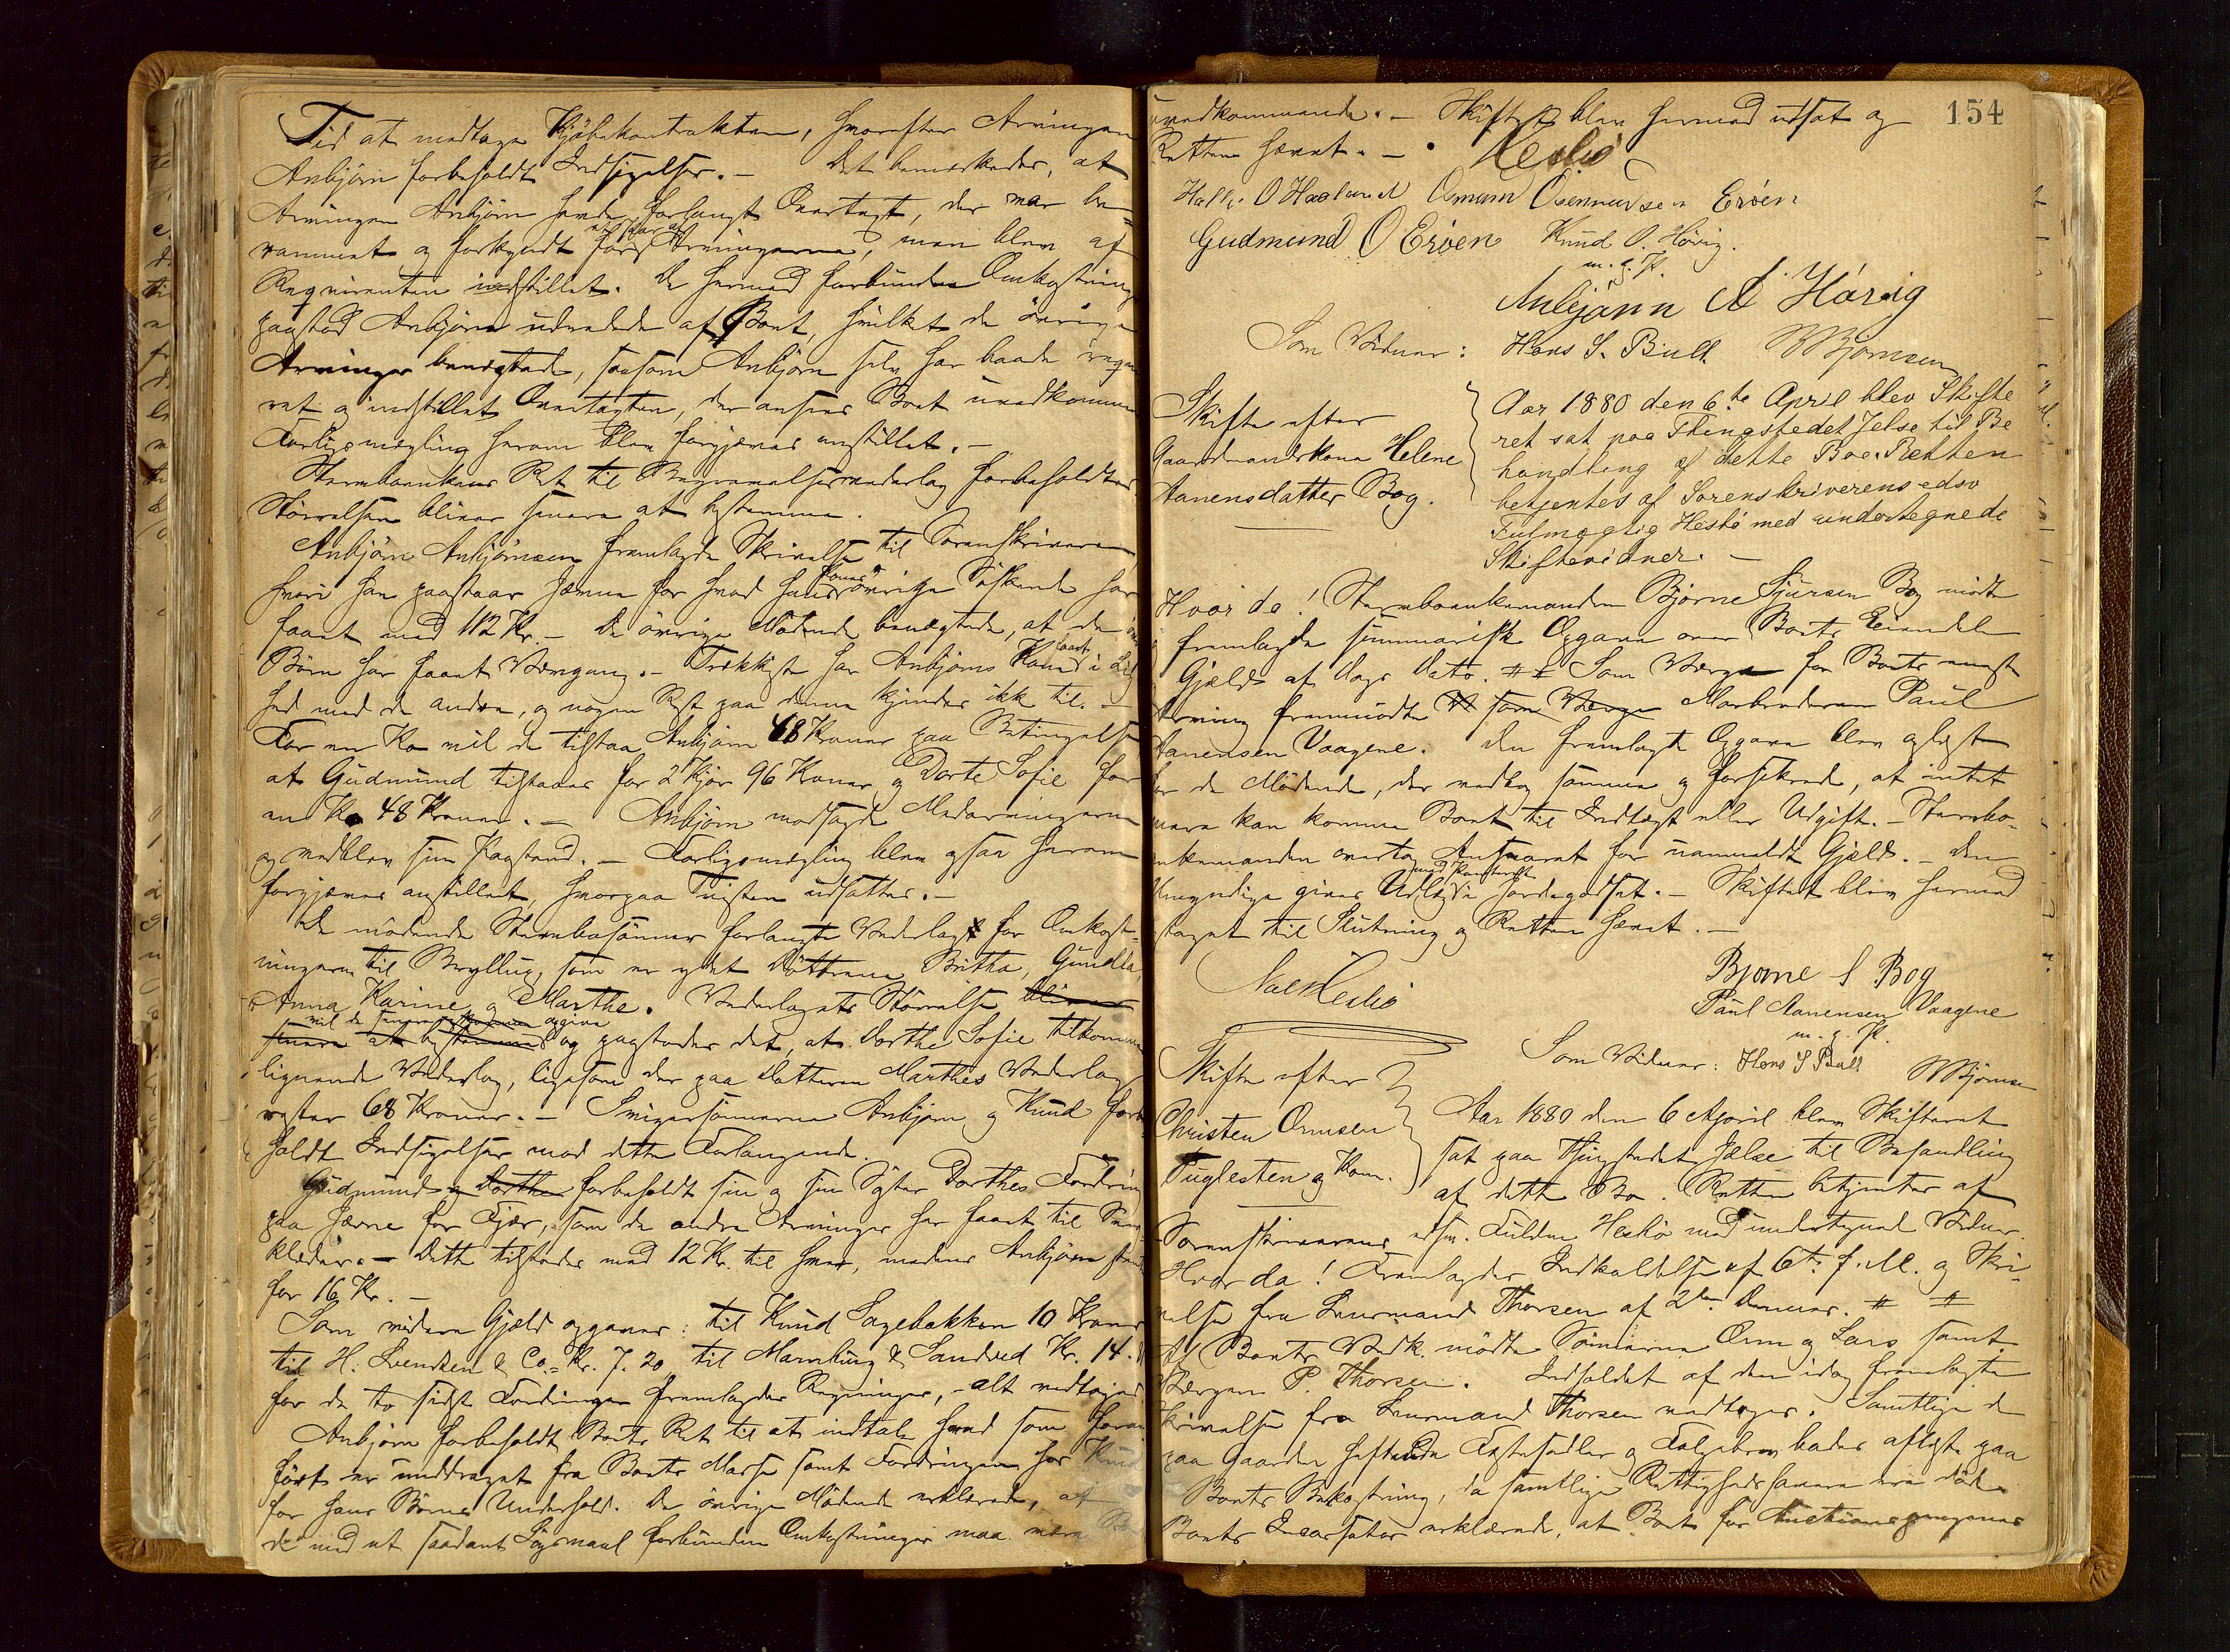 Tid at medtage Kjöbekontrakten, hvorefter Arvingen
Anbjörn forbeholdt Indsigelser. – Det bemærkedes, at
Arvingen Anbjörn havde forlangt Overtagt, der var be-
rammet og forkyndt for Arvingerne, men blev af
Reqvirenten indstillet. De hermed forbundne Omkostning
paastod Anbjörn udredede af Boet, hvilket de övrige
Arvinger benægtede, saasom Anbjörn selv har baade reqvi
ret og indstillet Overtagten, der ansees Boet uvedkommen
Forligsmægling herom blev forgjæves anstillet. –
Stervboenkens Ret til Begravelsesvederlag forbeholdtes.
Störrelsen bliver senere at bestemme.
Anbjörn Anbjörnsen fremlagde Skrivelse til Sorenskriveren
hvori han paastaar Jævne for hvad hans Kones övrige Söskende har
faaet med 112 Kr. – De övrige Mödende benægtede, at de övr
Börn har faaet Sengang. – Trækkiste har Anbjörns Kone faaet i Lig
hed med de andre, og nogen Rest paa denne kjendes ikke til. –
For en Ko vil de tilstaa Anbjörn 48 Kroner paa Betingelse
at Gudmund tilstaaes for 2 Kjör 96 Kroner og Dorte Sofie for
en Ko 48 Kroner. – Anbjörn modsagde Medarvingerne
og vedblev sin Paastand. – Forligsmægling blev ogsaa herom
forgjæves anstillet, hvorpaa Tvisten udsattes. –
De mödende Stervbosönner forlangte Vederlag for Omkost-
ningerne til Bryllup, som er ydet Döttrene Britha, Gundla,
Anna Karine og Marthe. Vederlagets Störrelse bliver
vil de senere opgive
senere at bestemmes og paastodes det, at Dorthe Sofie tilkommer
lignende Vederlag, ligesom der paa Datteren Marthes Vederlag
rester 68 Kroner. – Svigersönnerne Anbjørn og Knud forbe
holdt Indsigelser mod dette Forlangende.
Gudmund og Dorthe forbeholdt sin og sin Söster Dorthes Fordring
paa Jævne for Fjær, som de andre Arvinger har faaet til Seng
klæder. – Dette tilstodes med 12 Kr. til hver, medens Anbjörn
for 16 Kr. –
Som videre Gjæld opgaves: til Knud Sagebakken 10 Kroner
til H. Svendsen & Co. Kr. 7.20, til Mamling & Sandved Kr. 14.
for de to sidste Fordringer fremlagdes Regninger, – alt vedtoges
Anbjörn forbeholdt Boets Ret til at indtale hvad som
fört er unddraget fra Boets Masse samt Fordringen hos Knud
for hans Börns Underhold. De övrige Mödende erklærede, at
de med et saadant Sögsmaal forbundne Omkostninger maa være Bo
154
uvedkommende. – Skiftet blev hermed udsat og
Retten hævet. – Heskö
Halle O Haaland Osmun Osmundsen Eröen
Gudmund O Eröen Knud O. Hövig.
m. g. P.
Anbjørn A Hövig
Som Vidner: Hans S. Bull BBjørnsen
Skifte efter
Gaardmandskone Helene
Aanensdatter Bog.
Aar 1880 den 6te April blev Skifte
ret sat paa Thingstedet Jelse til Be
handling af dette Bo. Retten
betjentes af Sorenskriverens edsv
Fulmægtig Heskö med undertegnede
Skiftevidner. –
Hvor da! Stervboenkemanden Björne Sjursen Bog mödte
fremlagde summarisk Opgave over Boets Eiendele
Gjæld af Dags Dato. # # Som Værge for Boets eneste
Arving fremmödte som Værge Morbroderen Paul
Aanensen Vaagene. Den fremlagte Opgave blev oplæst
for de Mödende, der vedtog samme og forsikrede, at intet
mere kan komme Boet til Indtægt eller Udgift. – Stervbo-
enkemanden overtog Ansvaret for uanmeldt Gjæld. – Den
Umyndige gives Udlæg med Panteret i Jordegodset. – Skiftet blev hermed
taget til Slutning og Retten hævet. –
Heskö
Bjørne S Bog
Paul Aanensen Vaagene
m. g. P.
Som Vidner: Hans S Bull BBjörnsen
Skifte efter
Christen Ormsen
Fuglesten og Kone.
Aar 1880 den 6 April blev Skifteret
sat paa Thingstedet Jelse til Behandling
af dette Bo. Retten betjentes af
Sorenskriverens edsv. Fuldm Heskö med undertegnede Vidner.
Hvor da! Fremlagdes Indkaldelse af 6te f. M. og Skri-
velse fra Lensmand Thorsen af 2den Dennes. # #
Af Boets Vedk. mödte Sönnerne Orm og Lars samt
Værgen P. Thorsen. Indholdet af den idag fremlagte
Skrivelse fra Lensmand Thorsen vedtoges. Samtlige de
paa Gaarden heftende Fæstesedler og Folgebreve bades aflyste paa
Boets Bekostning, da samtlige Rettighedshavere ere döde
Boets Incassator erklærede, at Boet for Auctionspengenes